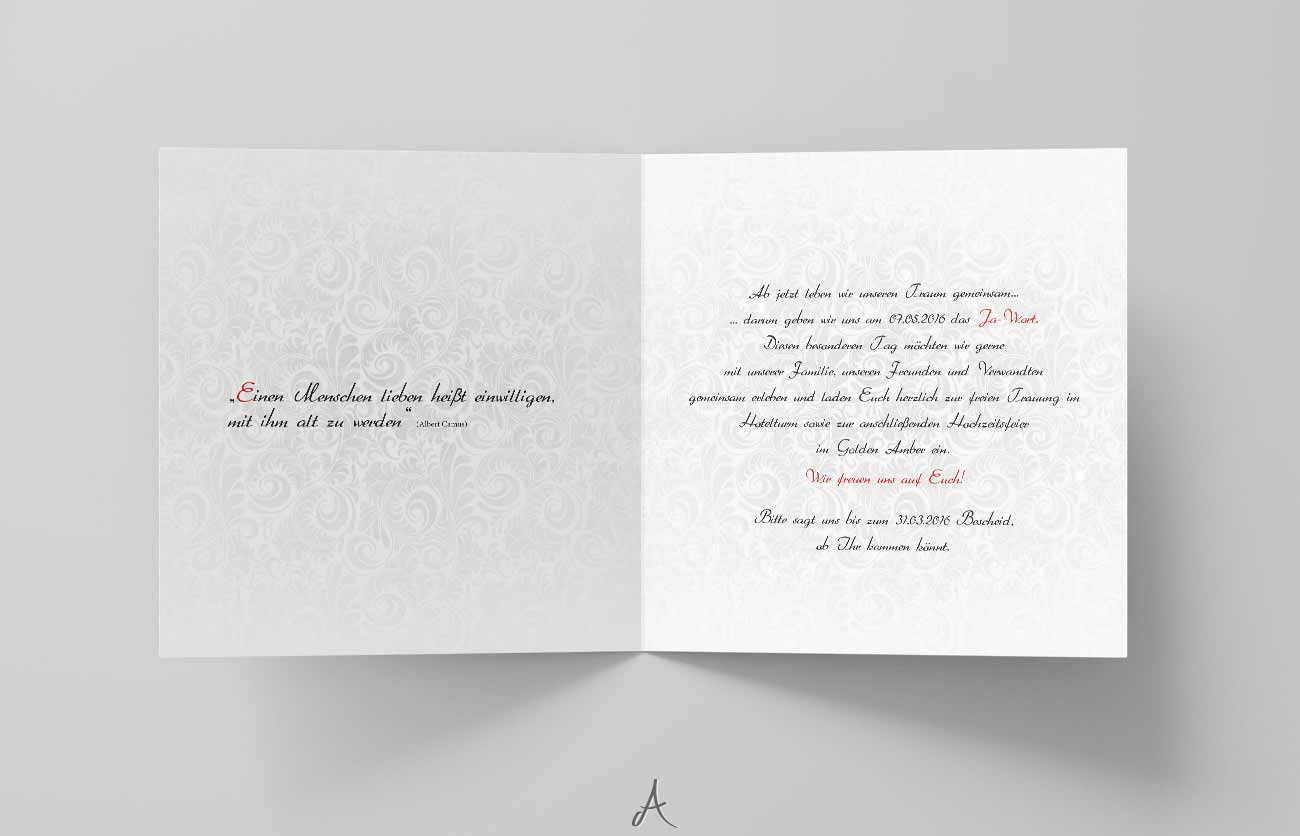 „Einen Menschen lieben heißt einwilligen,
mit ihm alt zu werden“ (Albert Camus)
Ab jetzt leben wir unseren Traum gemeinsam...
... darum geben wir uns am 07.05.2016 das Ja-Wort.
Diesen besonderen Tag möchten wir gerne
mit unserer Familie, unseren Freunden und Verwandten
gemeinsam erleben und laden Euch herzlich zur freien Trauung im
Hotelturm sowie zur anschließenden Hochzeitsfeier
im Golden Amber ein.
Wir freuen uns auf Euch!
Bitte sagt uns bis zum 31.03.2016 Bescheid,
ob Ihr kommen könnt.
A